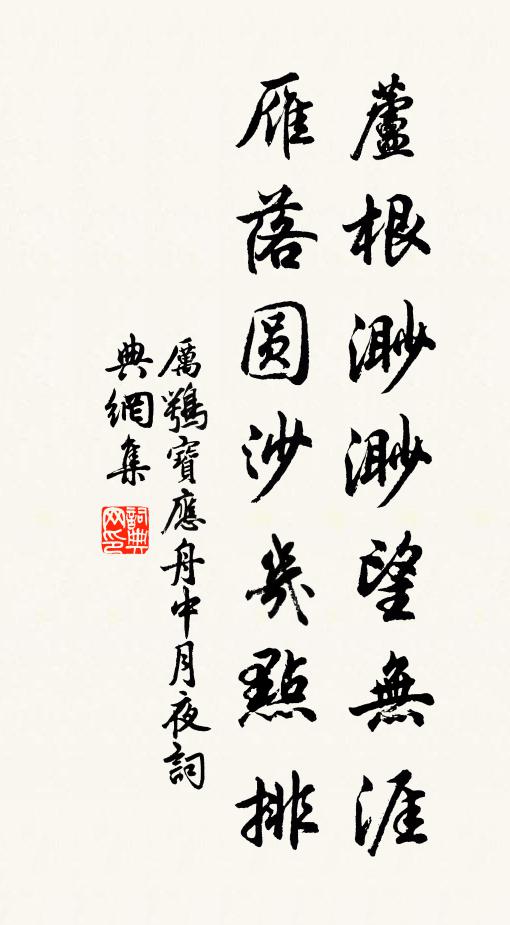 蘆根渺渺望無涯
雁落圓沙幾點排
厲鶚寶應舟中月夜詞
典網集
詞典網印